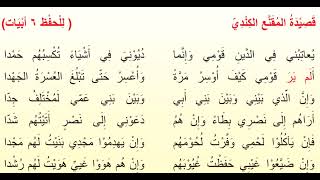 قَصِيدَةُ المُقَنَّعِ الكِنْدِيِّ ( لِلْحِفْظِ ٦ أَبْيَات)
يُعَاتِبُنِي فِي الدَّيْنِ قَوْمِي وَإِنَّمَا دُيُونِيَ فِي أَشْيَاءَ تُكْسِبُهُم حَمْدا
أَلَمْ يَرَ قَوْمِي كَيْفَ أُوسِرُ مَرَّةً وَأُعْسِرُ حَتَّى تَبْلُغَ العُسْرَةُ الجَهْدا
وَإِنَّ الَّذِي بَيْنِي وَبَيْنَ بَنِي أَبِي وَبَيْنَ بَنِي عَمِّي لَمُخْتَلِفٌ جِدًّا
أَرَاهُم إِلَى نَصْرِي بِطَاءً وَإِنْ هُمُ دَعَوْنِي إِلَى نَصْرٍ أَتَيْتُهُم شَدًّا
فَإِنْ يَأْكُلُوا لَحْمِي وَفَرْتُ لُحُومَهُم وَإِنْ يَهْدِمُوا مَجْدِي بَنَيْتُ لَهُم مَجْدَا
وَإِنْ ضَيَّعُوا غَيْبِي حَفِظْتُ غُيُوبَهُم وَإِنْ هُم هَوَوْا غَيِّي هَوِيْتُ لَهُم رُشْدَا